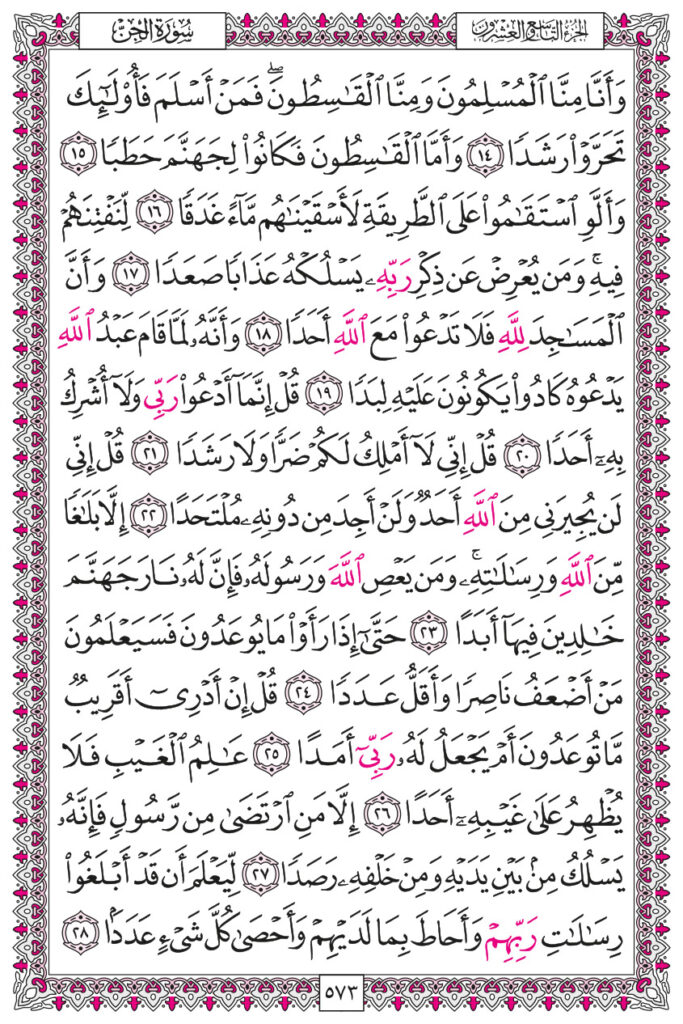 الجزء التاسع والعشرون
سُورَةُ الجِنّ
وَأَنَّا مِنَّا ٱلْمُسْلِمُونَ وَمِنَّا ٱلْقَٰسِطُونَۖ فَمَنْ أَسْلَمَ فَأُو۟لَٰٓئِكَ
تَحَرَّوْا۟ رَشَدًا ١٤ وَأَمَّا ٱلْقَٰسِطُونَ فَكَانُوا۟ لِجَهَنَّمَ حَطَبًا ١٥
وَأَلَّوِ ٱسْتَقَٰمُوا۟ عَلَى ٱلطَّرِيقَةِ لَأَسْقَيْنَٰهُم مَّآءً غَدَقًا ١٦ لِّنَفْتِنَهُمْ
فِيهِۚ وَمَن يُعْرِضْ عَن ذِكْرِ رَبِّهِۦ يَسْلُكْهُ عَذَابًا صَعَدًا ١٧ وَأَنَّ
ٱلْمَسَٰجِدَ لِلَّهِ فَلَا تَدْعُوا۟ مَعَ ٱللَّهِ أَحَدًا ١٨ وَأَنَّهُۥ لَمَّا قَامَ عَبْدُ ٱللَّهِ
يَدْعُوهُ كَادُوا۟ يَكُونُونَ عَلَيْهِ لِبَدًا ١٩ قُلْ إِنَّمَآ أَدْعُوا۟ رَبِّى وَلَآ أُشْرِكُ
بِهِۦٓ أَحَدًا ٢٠ قُلْ إِنِّى لَآ أَمْلِكُ لَكُمْ ضَرًّا وَلَا رَشَدًا ٢١ قُلْ إِنِّى
لَن يُجِيرَنِى مِنَ ٱللَّهِ أَحَدٌ وَلَنْ أَجِدَ مِن دُونِهِۦ مُلْتَحَدًا ٢٢ إِلَّا بَلَٰغًا
مِّنَ ٱللَّهِ وَرِسَٰلَٰتِهِۦۚ وَمَن يَعْصِ ٱللَّهَ وَرَسُولَهُۥ فَإِنَّ لَهُۥ نَارَ جَهَنَّمَ
خَٰلِدِينَ فِيهَآ أَبَدًا ٢٣ حَتَّىٰٓ إِذَا رَأَوْا۟ مَا يُوعَدُونَ فَسَيَعْلَمُونَ
مَنْ أَضْعَفُ نَاصِرًا وَأَقَلُّ عَدَدًا ٢٤ قُلْ إِنْ أَدْرِىٓ أَقَرِيبٌ
مَّا تُوعَدُونَ أَمْ يَجْعَلُ لَهُۥ رَبِّىٓ أَمَدًا ٢٥ عَٰلِمُ ٱلْغَيْبِ فَلَا
يُظْهِرُ عَلَىٰ غَيْبِهِۦٓ أَحَدًا ٢٦ إِلَّا مَنِ ٱرْتَضَىٰ مِن رَّسُولٍ فَإِنَّهُۥ
يَسْلُكُ مِنۢ بَيْنِ يَدَيْهِ وَمِنْ خَلْفِهِۦ رَصَدًا ٢٧ لِّيَعْلَمَ أَن قَدْ أَبْلَغُوا۟
رِسَٰلَٰتِ رَبِّهِمْ وَأَحَاطَ بِمَا لَدَيْهِمْ وَأَحْصَىٰ كُلَّ شَىْءٍ عَدَدًۢا ٢٨
٥٧٣